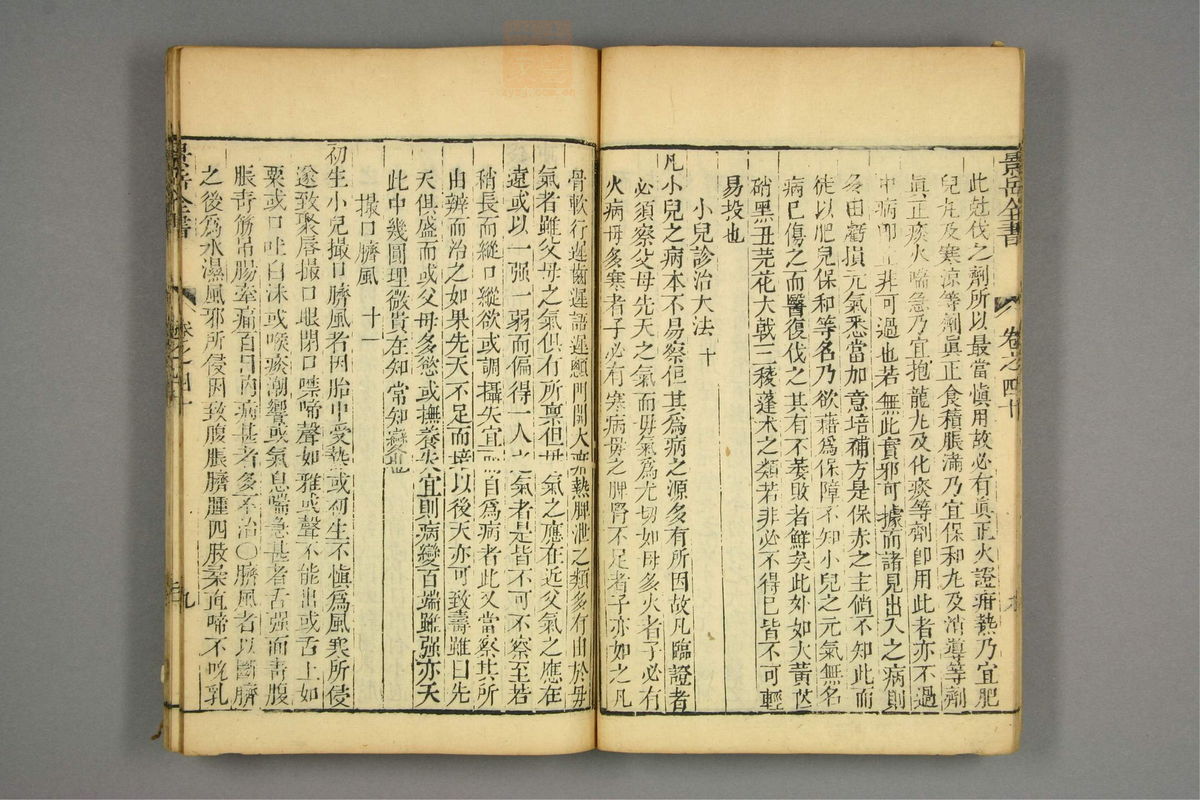 景岳全書
卷之四十
此尅伐之劑所以最當慎用故必有眞正火證疳熱乃宜肥
兒丸及寒涼等劑眞正食積脹滿乃宜保和丸及消導等劑
眞正痰火喘急乃宜抱龍丸及化痰等劑卽用此者亦不過
中病卽止非可過也若無此實邪可據而諸見出入之病則
多由虧損元氣悉當加意培補方是保赤之主倘不知此而
徒以肥兒保和等名乃欲藉爲保障不知小兒之元氣無名
病已傷之而醫復伐之其有不萎敗者鮮矣此外如大黃芒
硝黑丑芫花大戟三稜蓬术之類若非必不得已皆不可輕
易投也
小兒診治大法 十
凡小兒之病本不易察但其爲病之源多有所因故凡臨證者
必須察父母先天之氣而母氣爲尤切如母多火者子必有
火病母多寒者子必有寒病母之脾腎不足者子亦如之凡
骨軟行遲齒遲語遲顖門開大疳熱脾泄之類多有由於母
氣者雖父母之氣俱有所禀但母氣之應在近父氣之應在
遠或以一强一弱而偏得一人之氣者是皆不可不察至若
稍長而縱口縱欲或調攝失宜而自爲病者此又當察其所
由辨而治之如果先天不足而培以後天亦可致壽雖曰先
天俱盛而或父母多慾或撫養失宜則病變百端雖强亦夭
此中幾圓理微貴在知常知變也
撮口臍風 十一
初生小兒撮口臍風者因胎中受熱或初生不慎爲風寒所侵
遂致聚唇撮口眼閉口噤啼聲如雅或聲不能出或舌上如
粟或口吐白沫或喉痰潮響或氣息喘急甚者舌强面青腹
脹青筋吊腸牽痛百日內病甚者多不治〇臍風者以斷臍
之後爲水濕風邪所侵因致腹脹臍腫四肢柔直啼不吮乳
景岳全書
卷之四十
九